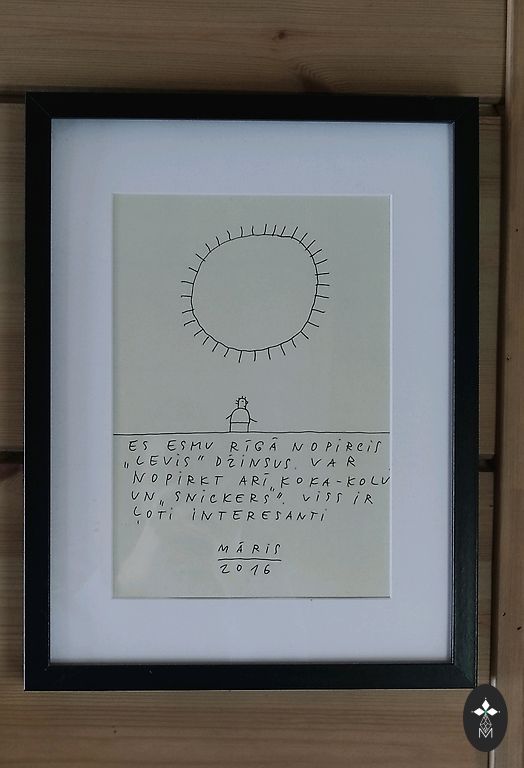 ES ESMU RĪGĀ NOPIRCIS
„LEVIS” DŽINSUS. VAR
NOPIRKT ARĪ „KOKA-KOLU
UN „SNICKERS”. VISS IR
ĻOTI INTERESANTI
MĀRIS
2016
M